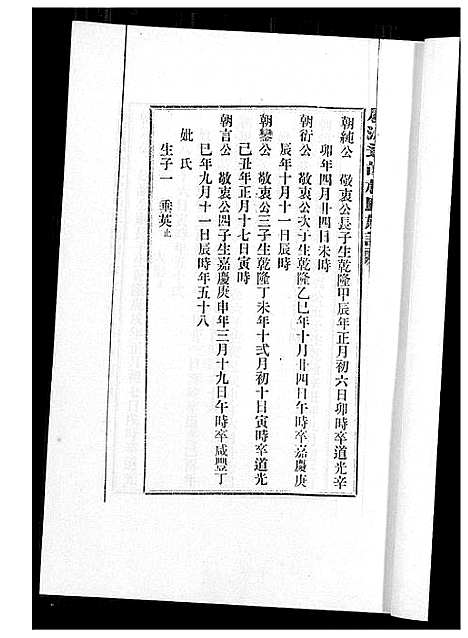 朝純公　敬衷公長子生乾隆甲辰年正月初六日卯時卒道光辛
卯年四月廿四日未時
朝衍公　敬衷公次子生乾隆乙巳年十月廿四日午時卒嘉慶庚
辰年十月十一日辰時
朝鑾公　敬衷公三子生乾隆丁未年十弍月初十日寅時卒道光
己丑年正月十七日寅時
朝言公　敬衷公四子生嘉慶庚申年三月十九日午時卒咸豐丁
巳年九月十一日辰時年五十八
妣氏
生子一　乘英止